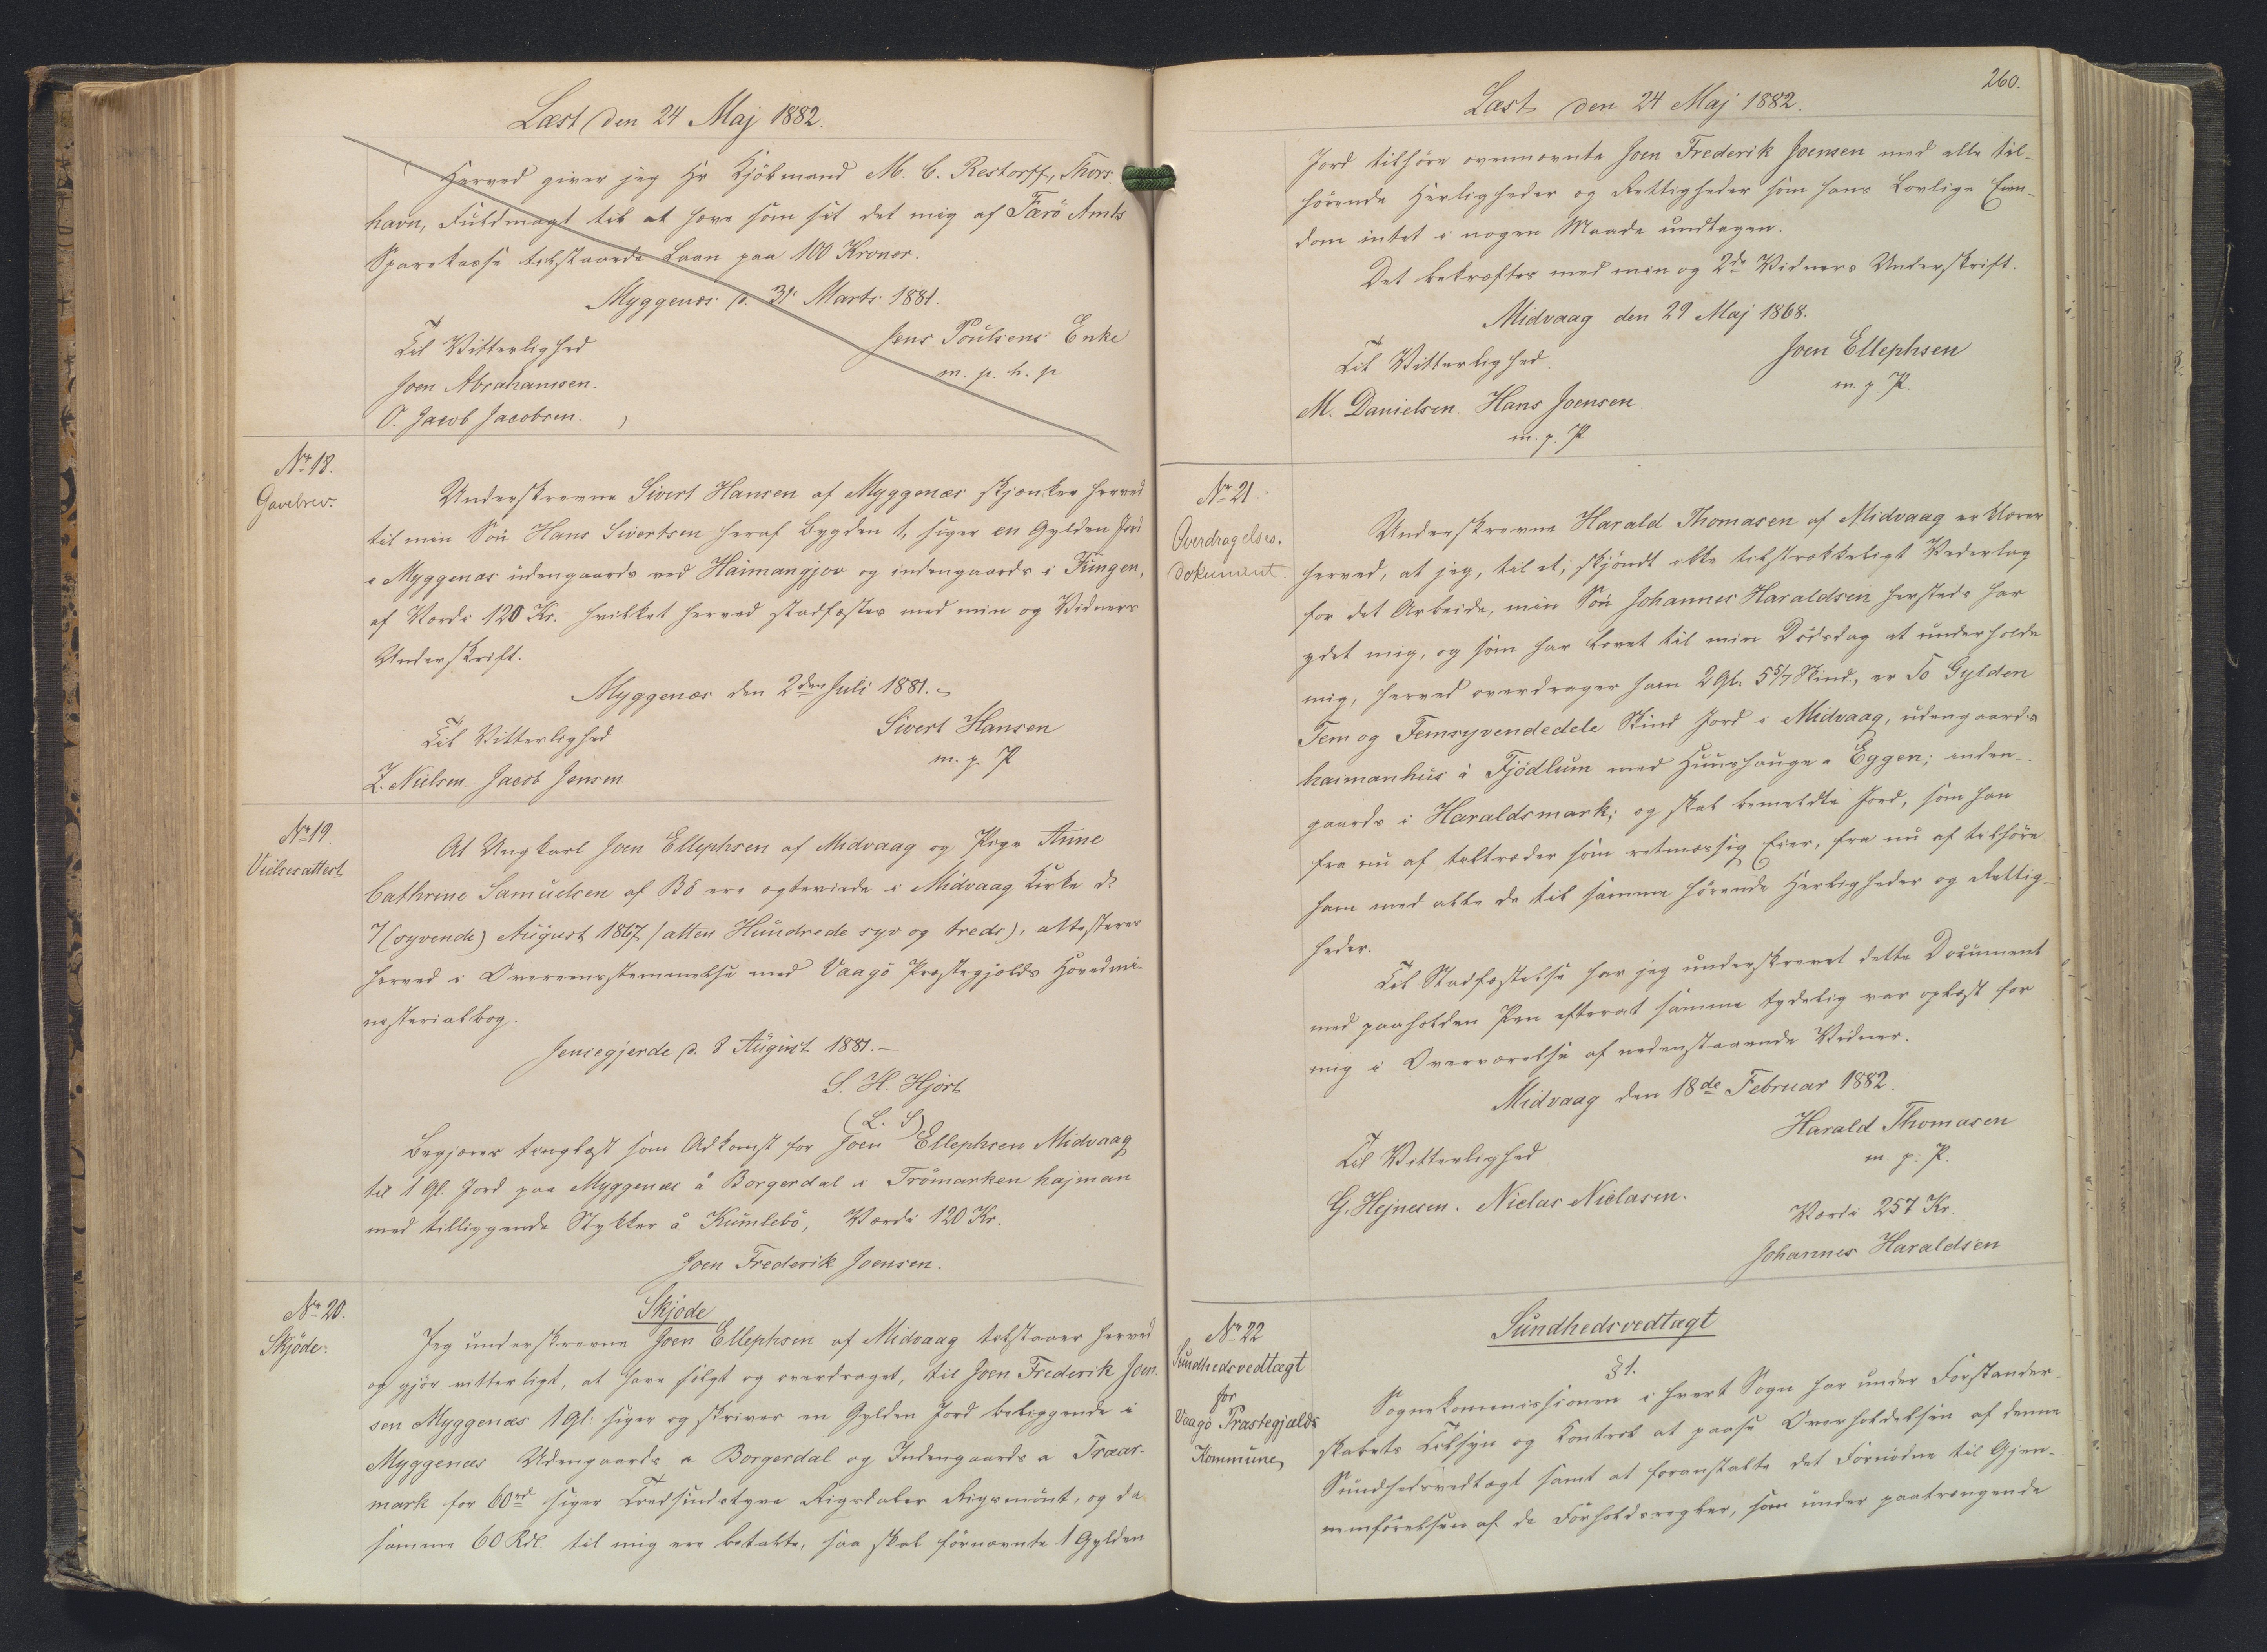 Læst den 24 Maj 1882.
Herved giver jeg Hr Kjöbmand M. C. Restorff, Thors-
havn, Fuldmagt til at hæve som sit det mig af Færö Amts
Sparekasse tilstaaede Laan paa 100 Kroner.
Myggenæs d. 31 Marts 1881.
Til Vitterlighed
Jens Poulsens Enke
Joen Abrahamsen.
m. p. h. p
O. Jacob Jacobsen.
No 18.
Gavebrev.
Underskrevne Sivert Hansen af Myggenæs skjænker herved
til min Sön Hans Sivertsen heraf Bygden 1, siger en Gylden Jord
i Myggenæs udengaards ved Haimangjov og indengaards i Tungen,
af Værdi 120 Kr. hvilket herved stadfæstes med min og Vidners
Underskrift.
Myggenæs den 2den Juli 1881.
Til Vitterlighed
Sivert Hansen
m. p. P
Z. Nielsen. Jacob Jensen.
No 19.
Vielsesattest
At Ungkarl Joen Ellephsen af Midvaag og Pige Anne
Cathrine Samuelsen af Bö ere ægteviede i Midvaag Kirke d.
7 (syvende) August 1867 (atten Hundrede syv og treds), attesteres
herved i Overensstemmelse med Vaagö Præstegjelds Hovedmi-
nisterialbog.
Jensegjerde d. 8 August 1881.
S. H. Hjort
(L. S)
Begjæres tinglæst som Adkomst for Joen Ellephsen Midvaag
til 1 Gl. Jord paa Myggenæs å Borgerdal i Trömarken hajman
med tilliggende Stykker å Kumlebö, Værdi 120 Kr.
Joen Frederik Joensen.
No 20.
Skjöde.
Skjöde
Jeg underskrevne Joen Ellephsen af Midvaag tilstaaer herved
og gjör vitterligt, at have solgt og overdraget, til Joen Frederik Joen-
sen Myggenæs 1 Gl. siger og skriver en Gylden Jord beliggende i
Myggenæs Udengaards a Borgerdal og Indengaards a Træar-
mark for 60 rd siger Tredsindstyve Rigsdaler Rigsmönt, og da
samme 60 Rdl. til mig ere betalte, saa skal förnævnte 1 Gylden
260.
Læst den 24 Maj 1882.
Jord tilhöre ovennævnte Joen Frederik Joensen med alle til-
hörende Herligheder og Rettigheder som hans Lovlige Eien-
dom intet i nogen Maade undtagen.
Det bekræftes med min og 2de Vidners Underskrift.
Midvaag den 29 Maj 1868.
Til Vitterlighed.
Joen Ellephsen
m. p. P
M. Danielsen. Hans Joensen.
m. p. P
No 21.
Overdragelses-
dokument.
Underskrevne Harald Thomasen af Midvaag erklærer
herved, at jeg, til et, skjöndt ikke tilstrækkeligt Vederlag
for det Arbeide, min Sön Johannes Haraldsen hersteds har
ydet mig, og som har lovet til min Dödsdag at underholde
mig, herved overdrager ham 2 Gl. 5 5/7 Skind, er To Gylden
Fem og Femsyvendedele Skind Jord i Midvaag, udengaards
haimanhús à Fjödlum med Huushauge a Eggen; inden-
gaards i Haraldsmark; og skal bemeldte Jord, som han
fra nu af tiltræder som retmæssig Eier, fra nu af tilhöre
ham med alle de til samme hörende Herligheder og Rettig-
heder.
Til Stadfæstelse har jeg underskrevet dette Document
med paaholden Pen efterat samme tydelig var oplæst for
mig i Overværelse af nedenstaaende Vidner.
Midvaag den 18de Februar 1882.
Harald Thomasen
Til Vitterlighed
m. p. P.
G. Hejnesen. Niclas Niclasen.
Værdi 257 Kr.
Johannes Haraldsen
No 22
Sundhedsvedtægt
for
Vaagö Præstegjælds
Kommune
Sundhedsvedtægt
§ 1.
Sognekommissionen i hvert Sogn har under Forstander-
skabets Tilsyn og Kontrol at paase Overholdelsen af denne
Sundhedsvedtægt samt at foranstalte det Fornödne til Gjen-
nemförelsen af de Forholdsregler, som under paatrængende